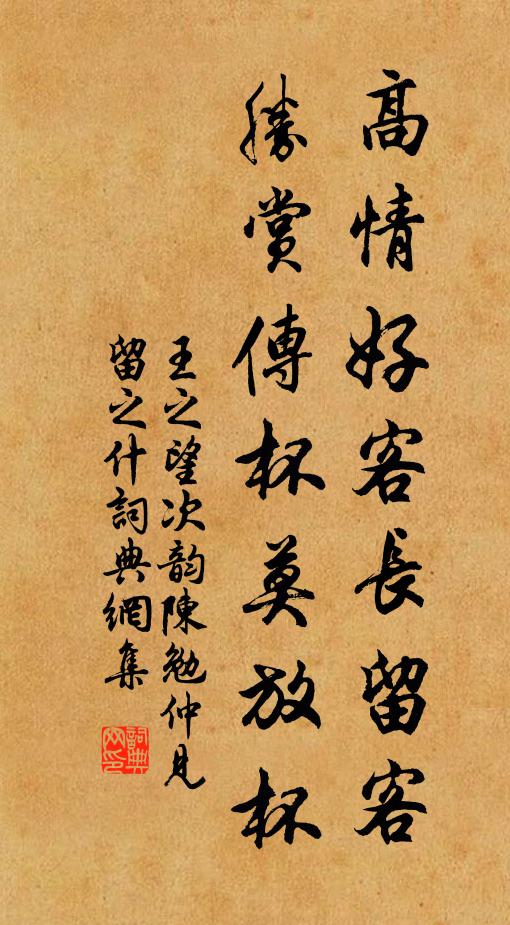 高情好客長留客
勝賞傳杯莫放杯
王之望次韵陳勉仲見
留之什詞典網集
詞典网印